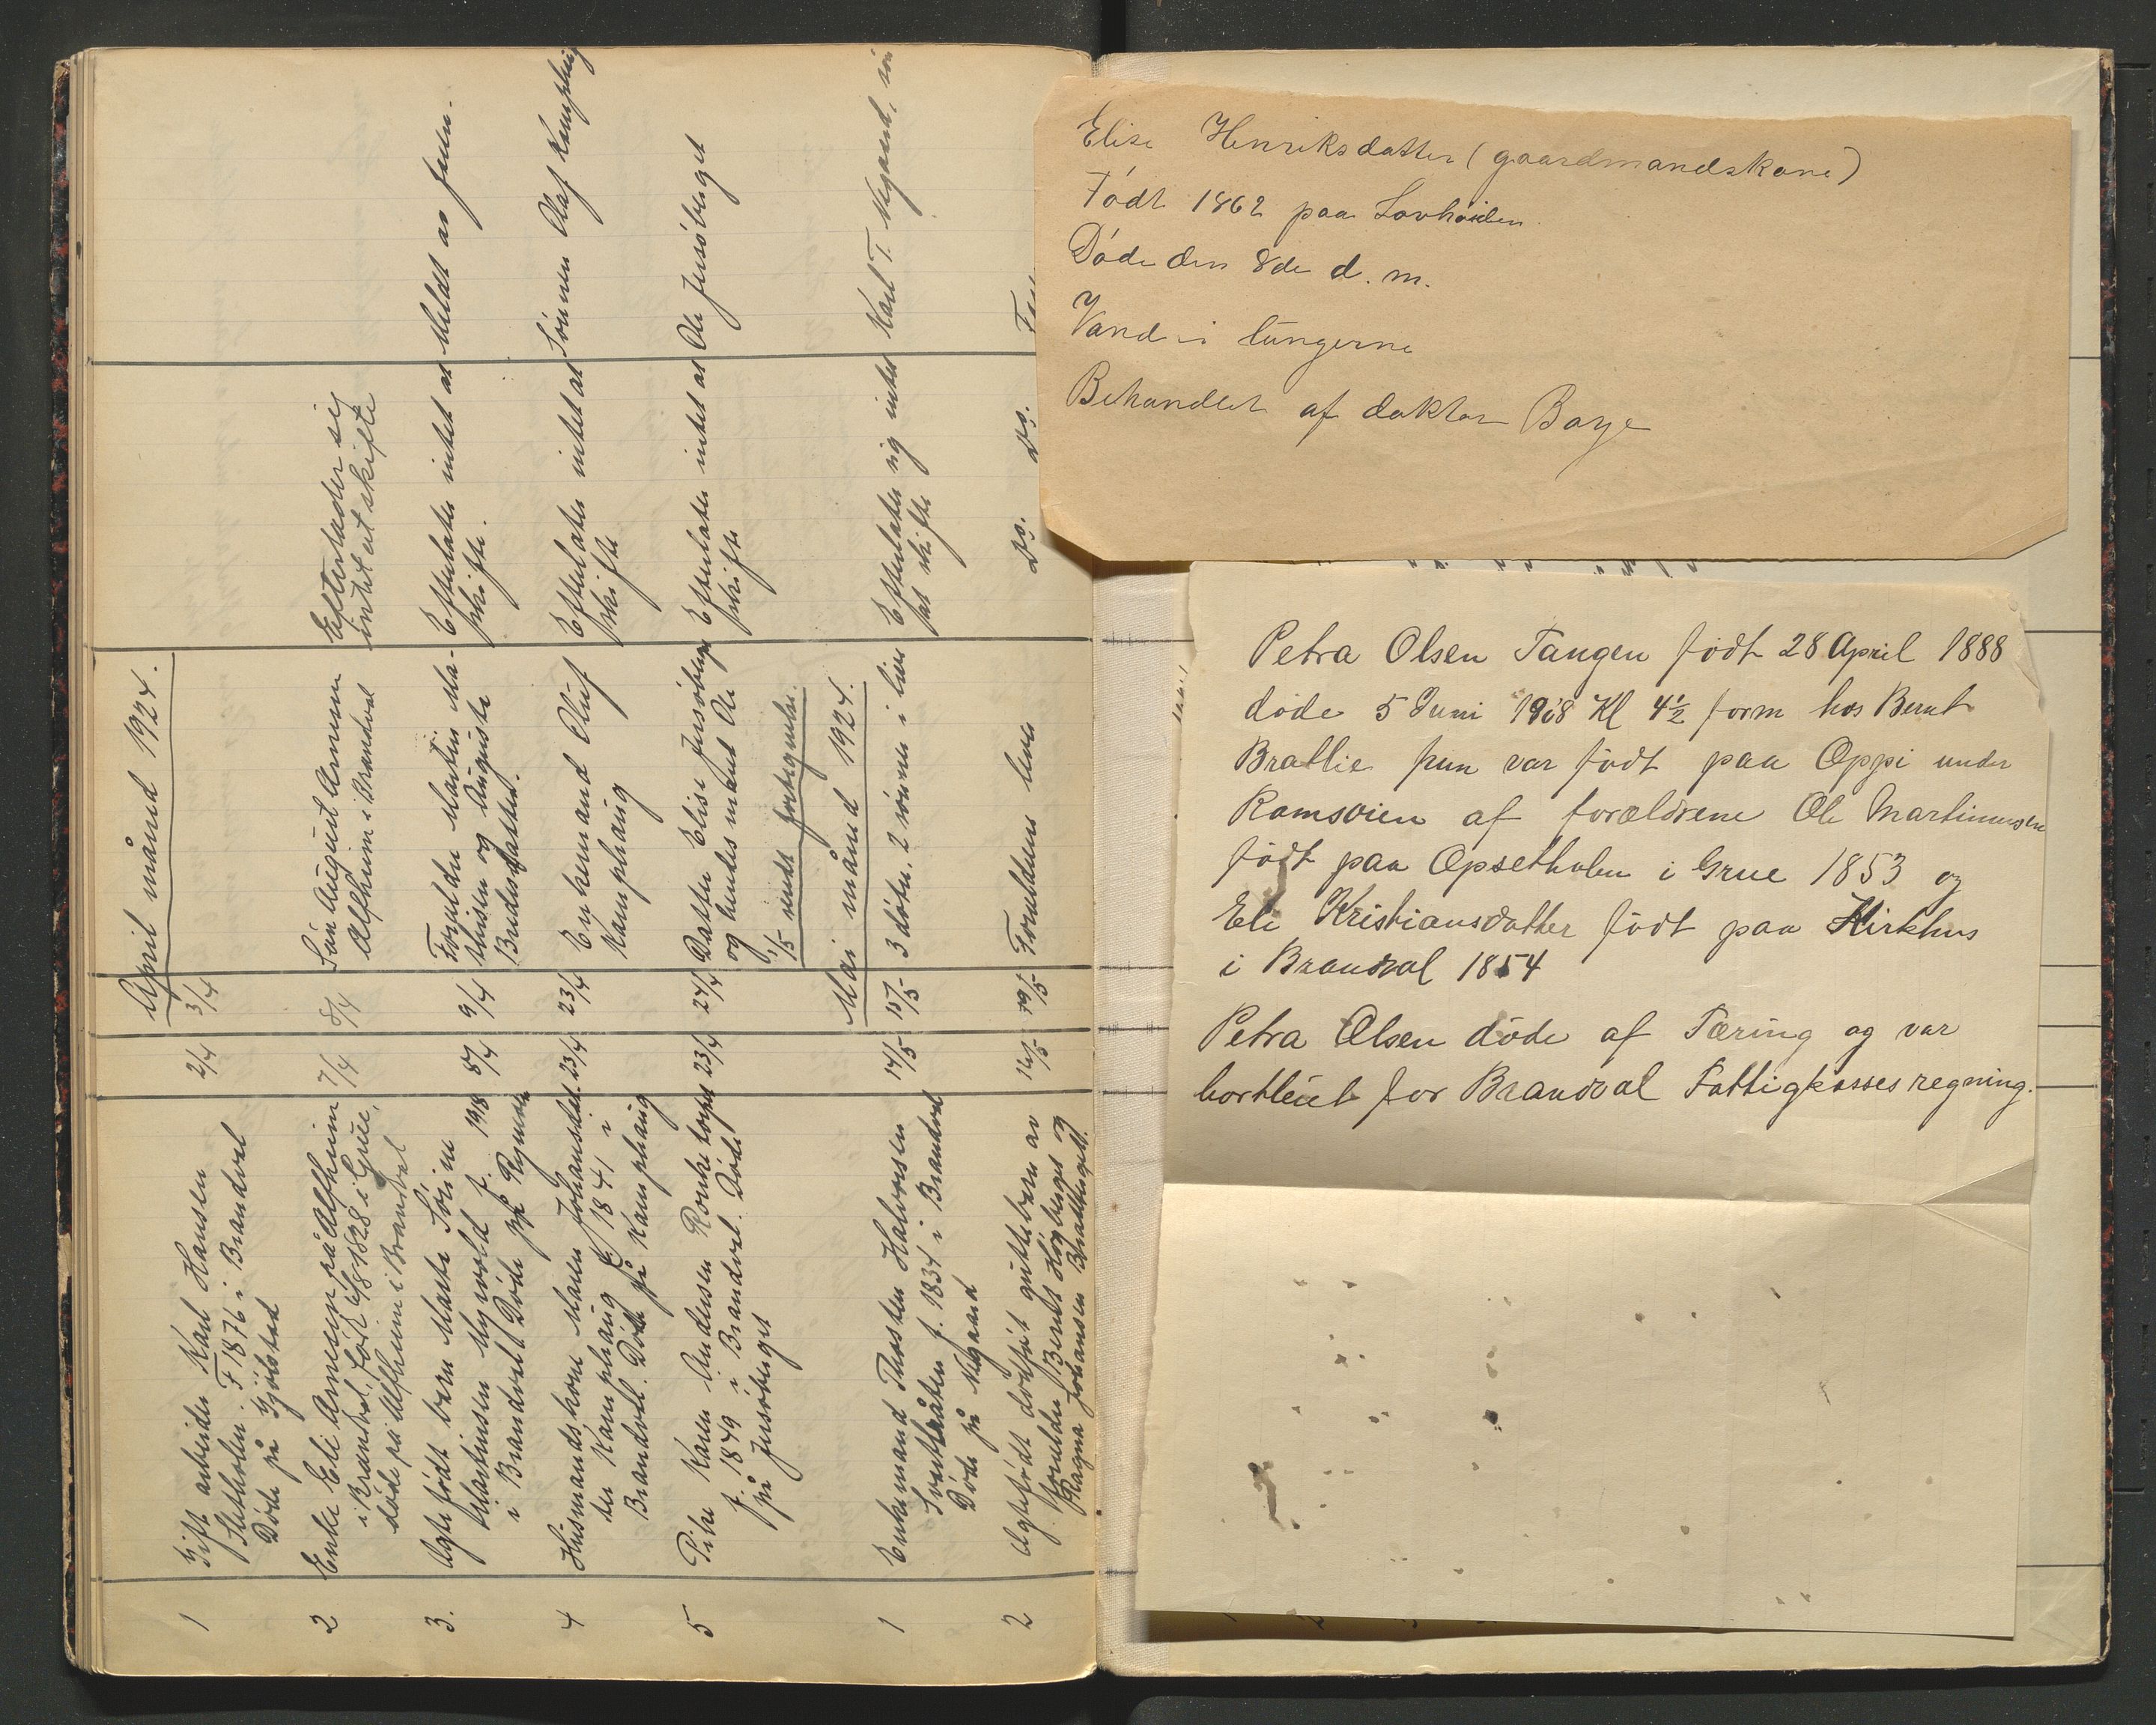 April månd 1924.
1
Gift arbeider Karl Hansen
F 1876 i Brandvel
Døde på Gjølstad
2/4
3/4
2
Enke Eli Arnesen på Alfheim
i Brandval, født 6/8 1828 i Grue,
døde på Alfheim i Brandval
7/4
8/4
Søn August Arnesen
Alfheim i Brandval
Efterlader sig
intet at skifte
3.
Ægte født barn
Martinsen Myrvold f. 1918
i Brandvel Døde på
5/4
9/4
Forældre Martin Ma-
thisen og Auguste
Efterlader intet at
skifte.
Meldt av
4
Husmandskone Maren Johansdat
ter Kamphaug f 1841 i
Brandvel. Døde på Kamphaug
23/4
23/4
Enkemand Oluf
Kamphaug
Efterlater intet at
skifte
Sønnen Olaf Kamphaug
5
Pike Karen Andersen
f. 1849 i Brandvel. Døde
på Jersøberget
23/4
24/4
Datter Elise Jersøberget
og hendes mand Ole
Efterlater intet at
skifte
Ole Jersøberget
1/5 sendt fortegnelse.
Mai månd 1924.
1
Enkemand Thorsten Halvorsen
f. 1834 i Brandvel
Døde på Nygaard
14/5
15/5
3 døtre, 2 sønner i live
Efterlater sig intet
at skifte
Karl T. Nygaard, søn
2
Ægtefødt dødfødt guttebarn av
forældre Bernt Høgberget og
Ragna Johansen Bratberget.
16/5
19/5
Forældrene lever
Do. Do.
Elise Henriksdatter (gaardmandskone)
Født 1862 paa Lovhøiden
Døde den 8de d. m.
Vand i lungerne
Behandlet af doktor Boye
Petra Olsen Tangen født 28 April 1888
døde 5 Juni 1908 Kl 4½ form hos Bernt
Bratlie hun var født paa Oppi under
Ramsøien af forældrene Ole Martinusen
født paa Opsetholen i Grue 1853 og
Eli Kristiansdatter født paa Kirkhus
i Brandval 1854
Petra Olsen døde af Tæring og var
bortleiet for Brandval Fattigkasses regning.